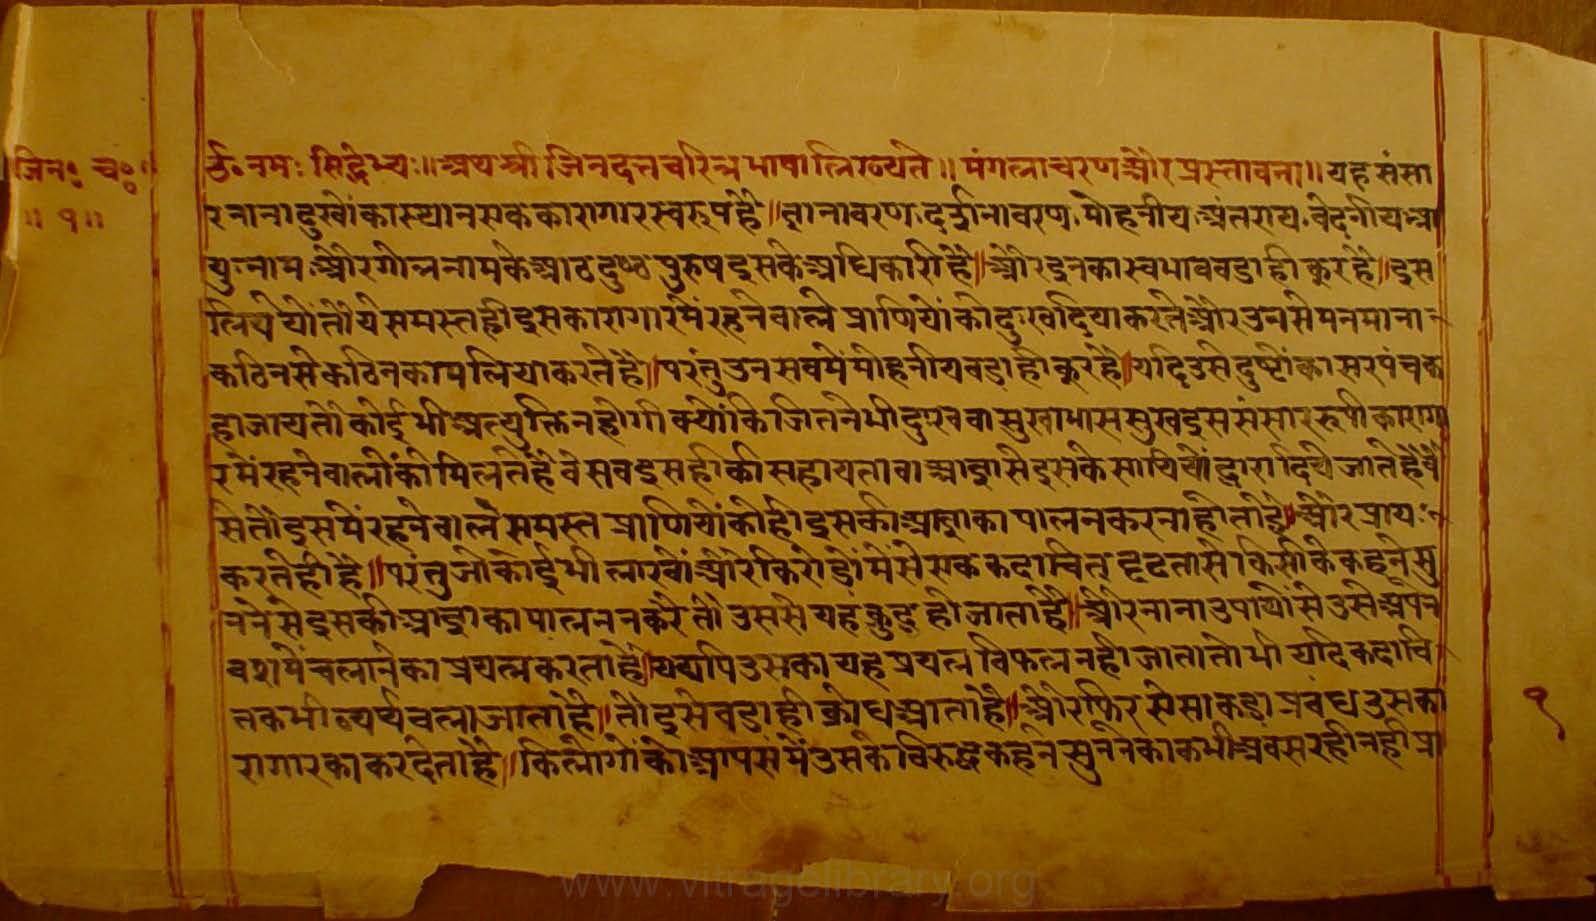 जिन॰ च॰
॥ १ ॥
ॐ नमः सिद्धेभ्यः ॥ अथ श्री जिनदत्त चरित्र भाषा लिख्यते ॥ मंगलाचरण और प्रस्तावना ॥ यह संसा
र नाना दुखों का स्थान सक कारागार स्वरूप है ॥ ज्ञानावरण दर्शनावरण मोहनीय अंतराय वेदनीय आ
यु नाम और गोत्र नाम के आठ दुष्ठ पुरुष इसके अधिकारी हैं ॥ और इनका स्वभाव बडा ही कूर है ॥ इस
लिये यों तो ये समस्त ही इस कारागार में रहने वाले प्राणियों को दुःख दिया करते और उनसे मनमाना
कठिन से कठिन काम लिया करते हैं ॥ परंतु उन सब में मोहनीय बडा ही कूर है ॥ यदि उसे दुष्टों का सरपंच क
हा जाय तो कोई भी अत्युक्ति न होगी क्योंकि जितने भी दुःख वा सुखाभास सुख इस संसार रूपी कारागा
र में रहने वालों को मिलते हैं वे सब इसही की सहायता वा आज्ञा से इसके साथियों द्वारा दिये जाते हैं वै
से तो इसमें रहने वाले समस्त प्राणियों को ही इसकी आज्ञा का पालन करना होता है ॥ और प्रायः
करते ही हैं ॥ परंतु जो कोई भी लाखों और किरोडों में से सक कदाचित् दृढता से किसी के कहने सु
नने से इसकी आज्ञा का पालन न करे तो उससे यह क्रुद्ध हो जाता है ॥ और नाना उपायों से उसे अपने
वश में चलाने का प्रयत्न करता है ॥ यद्यपि उसका यह प्रयत्न विफल नहीं जाता तो भी यदि कदाचि
त कभी व्यर्थ चला जाता है ॥ तो इसे बडा ही क्रोध आता है ॥ और फिर सेसा कडा प्रबंध उस का
रागार का कर देता है ॥ कि लोगों को आपस में उसके विरुद्ध कहने सुनने का कभी अवसर ही नहीं प्रा
१
www.vitragelibrary.org